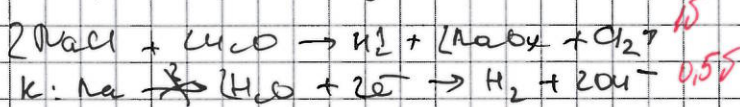 2NaCl + 2H₂O → H₂↑ + 2NaOH + Cl₂↑ 1б
K: Na 2H₂O + 2e⁻ → H₂ + 2OH⁻ 0,5б